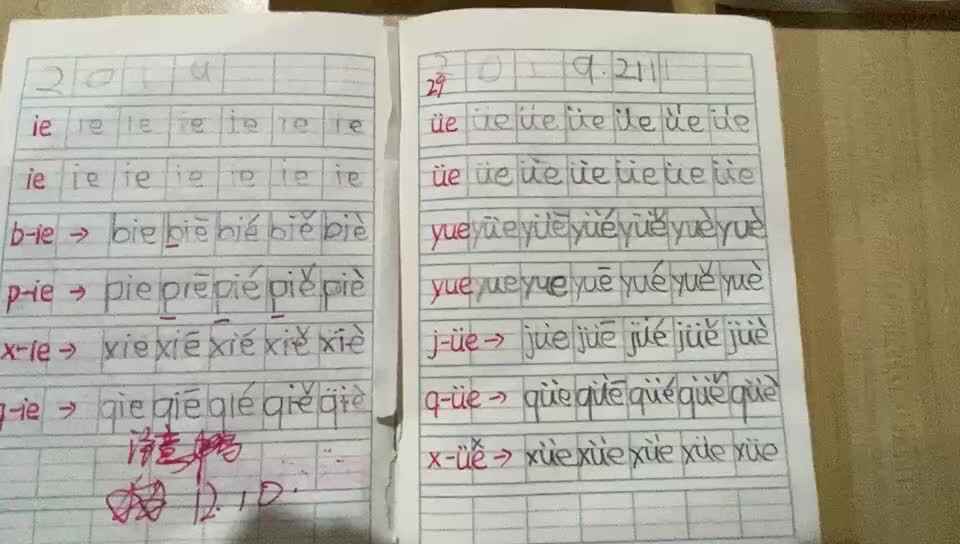 2 0 1 9
ie ie ie ie ie ie ie
ie ie ie ie ie ie ie
b-ie → bie biē bié biě biè
p-ie → pie piē pié piě piè
x-ie → xie xiē xié xiě xiè
q-ie → qie qiē qié qiě qiè
注意
12.10.
2 0 1 9.211
29
üe üe üe üe üe üe üe
üe üe üe üe üe üe üe
yue yüe yüē yüé yüě yuè yuè
yue yue yue yuē yué yuě yuè
j-üe → jue juē jüé jüě jüè
q-üe → qüe qüē qüé qüě qüè
x-üe → xüe xüe xüe xüe xüe